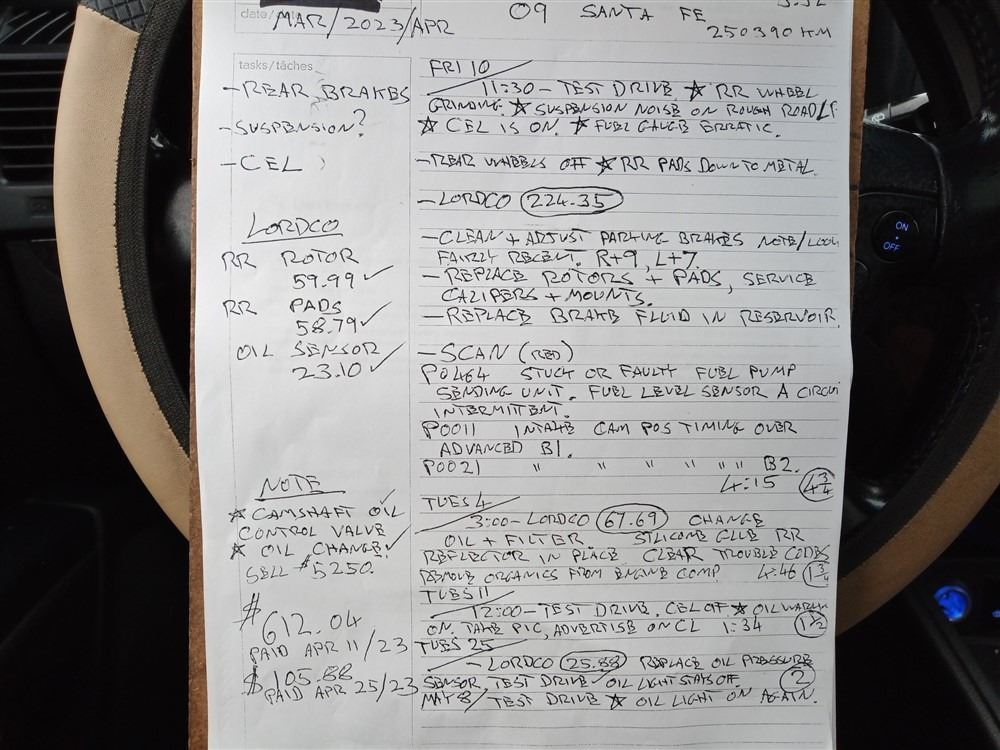 date/date
MAR/2023/APR
09 SANTA FE
250390 KM
tasks/tâches
- REAR BRAKES
- SUSPENSION?
- CEL
LORDCO
RR ROTOR
59.99 ✓
RR PADS
58.79 ✓
OIL SENSOR
23.10 ✓
NOTE
★ CAMSHAFT OIL ✓
CONTROL VALVE
★ OIL CHANGE ✓
SELL $5250.
$612.04
PAID APR 11/23
$105.88
PAID APR 25/23
FRI 10
11:30 - TEST DRIVE ★ RR WHEEL
GRINDING. ★ SUSPENSION NOISE ON ROUGH ROAD LF
★ CEL IS ON. ★ FUEL GAUGE ERRATIC.
- REAR WHEELS OFF ★ RR PADS DOWN TO METAL.
- LORDCO 224.35
- CLEAN + ADJUST PARKING BRAKES NOTE/LOOK
FAIRLY RECENT. R+9, L+7.
- REPLACE ROTORS + PADS, SERVICE
CALIPERS + MOUNTS.
- REPLACE BRAKE FLUID IN RESERVOIR.
- SCAN (RED)
P0464 STUCK OR FAULTY FUEL PUMP
SENDING UNIT. FUEL LEVEL SENSOR A CIRCUI
INTERMITTENT.
P0011 INTAKE CAM POS TIMING OVER
ADVANCED B1.
P0021 " " " " " " B2.
4:15 4 3/4
TUES 4
3:00 - LORDCO 67.69 CHANGE
OIL + FILTER SILICONE GLUE RR
REFLECTOR IN PLACE CLEAR TROUBLE CODES
REMOVE ORGANICS FROM ENGINE COMP. 4:46 1 3/4
TUES 11
12:00 - TEST DRIVE. CEL OFF ★ OIL WARN
ON. TAKE PIC, ADVERTISE ON CL 1:34 1 1/2
TUES 25
- LORDCO 25.88 REPLACE OIL PRESSURE
SENSOR, TEST DRIVE ✓ OIL LIGHT STAYS OFF. 2
MAY 8/ TEST DRIVE ★ OIL LIGHT ON AGAIN.
ON
OFF